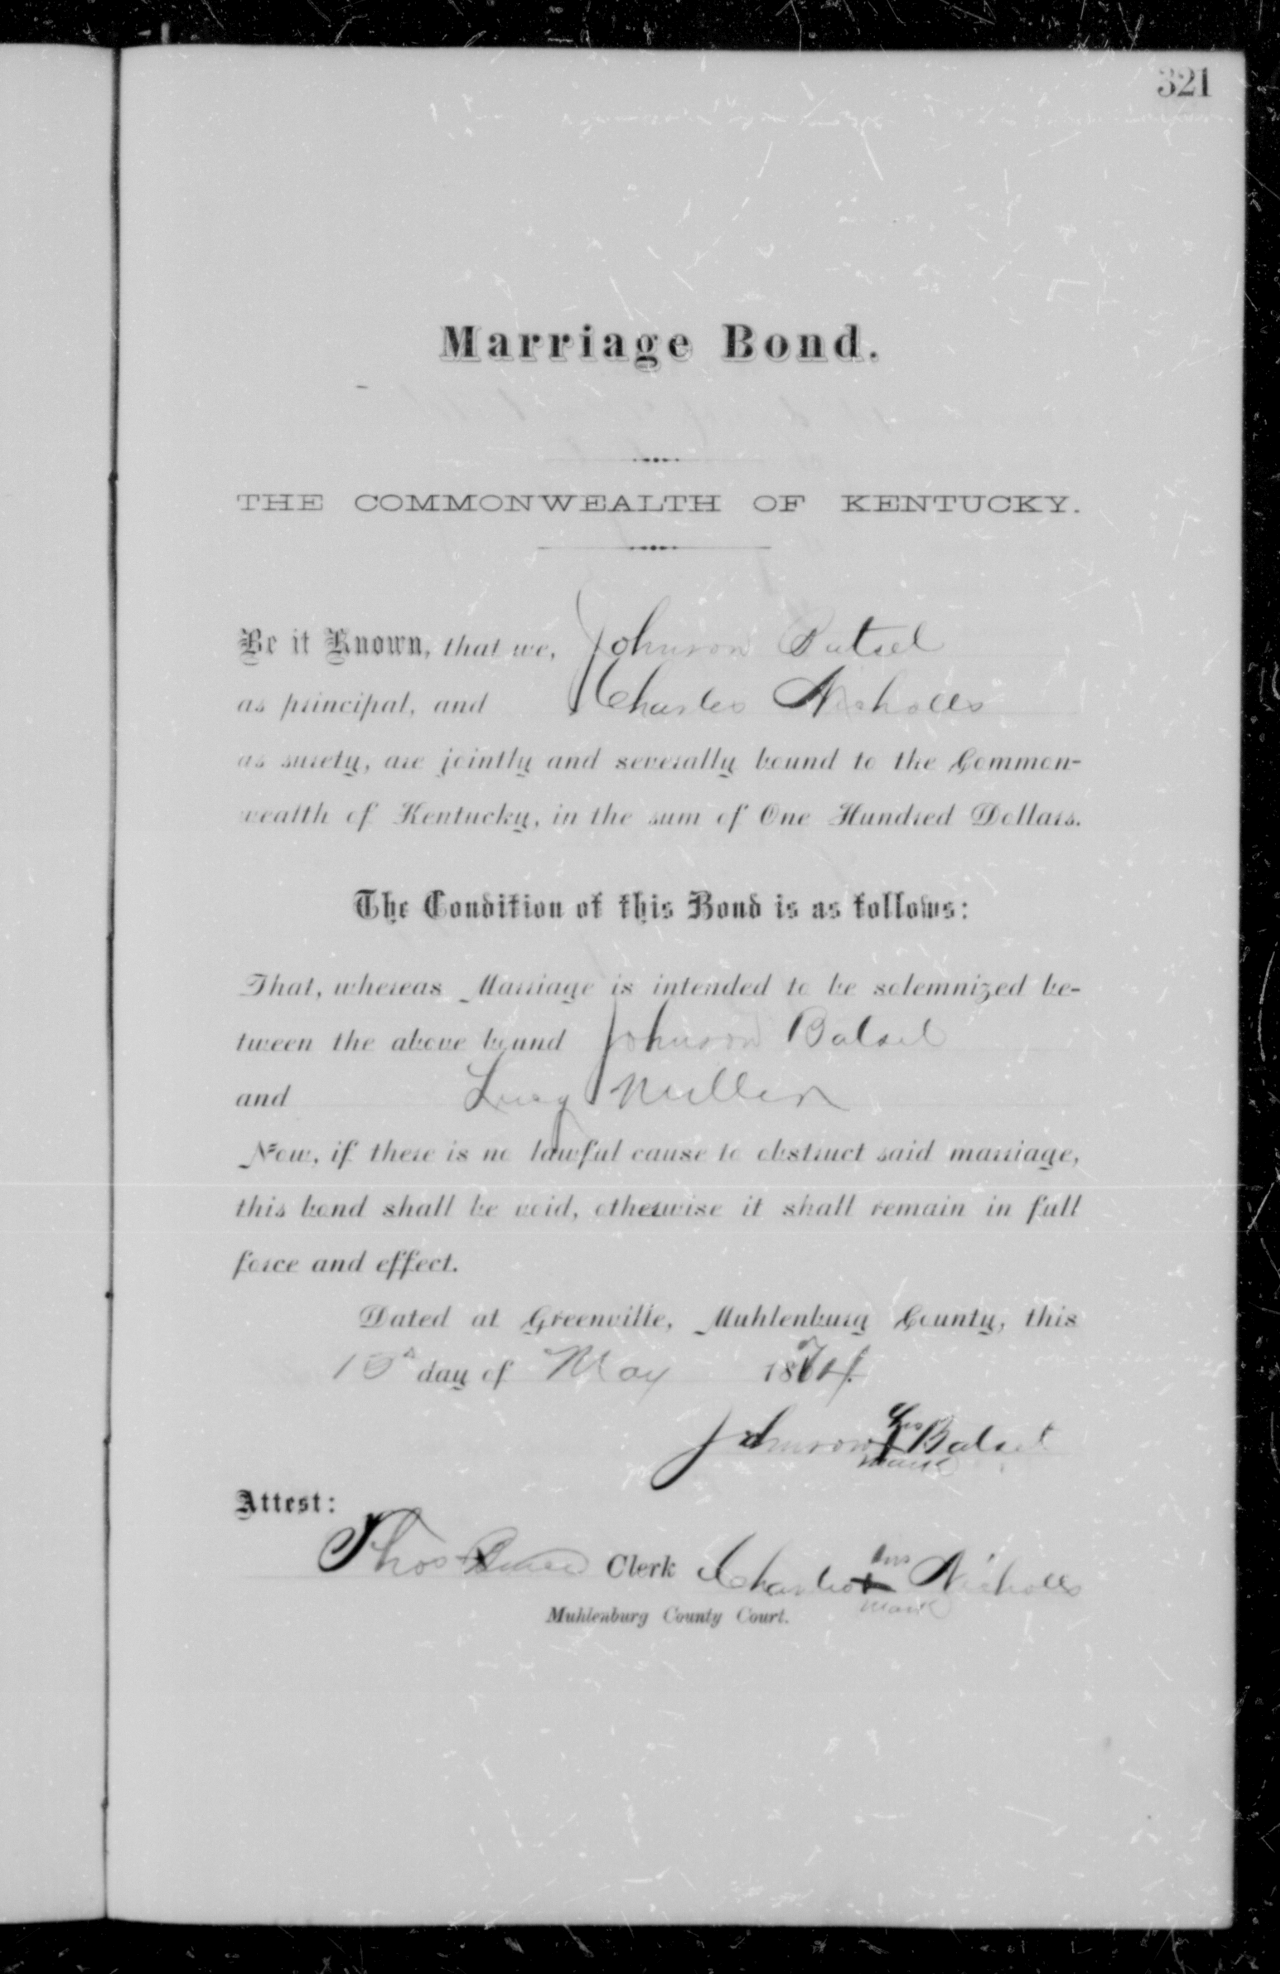 321
Marriage Bond.
THE COMMONWEALTH OF KENTUCKY.
Be it Known, that we, Johnson Batsel
as principal, and Charles Nicholls
as surety, are jointly and severally bound to the Common-
wealth of Kentucky, in the sum of One Hundred Dollars.
The Condition of this Bond is as follows:
That, whereas Marriage is intended to be solemnized be-
tween the above bound Johnson Batsel
and Lucy Miller
Now, if there is no lawful cause to obstruct said marriage,
this bond shall be void, otherwise it shall remain in full
force and effect.
Dated at Greenville, Muhlenburg County, this
15th day of May 1874.
Johnson his Batsel
mark
Attest:
Thos Clerk Charles his Nicholls
mark
Muhlenburg County Court.